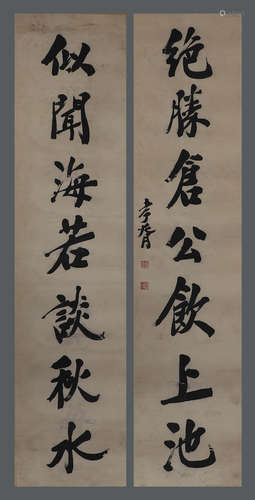 絶勝倉公飲上池
孝胥
似聞海若談秋水